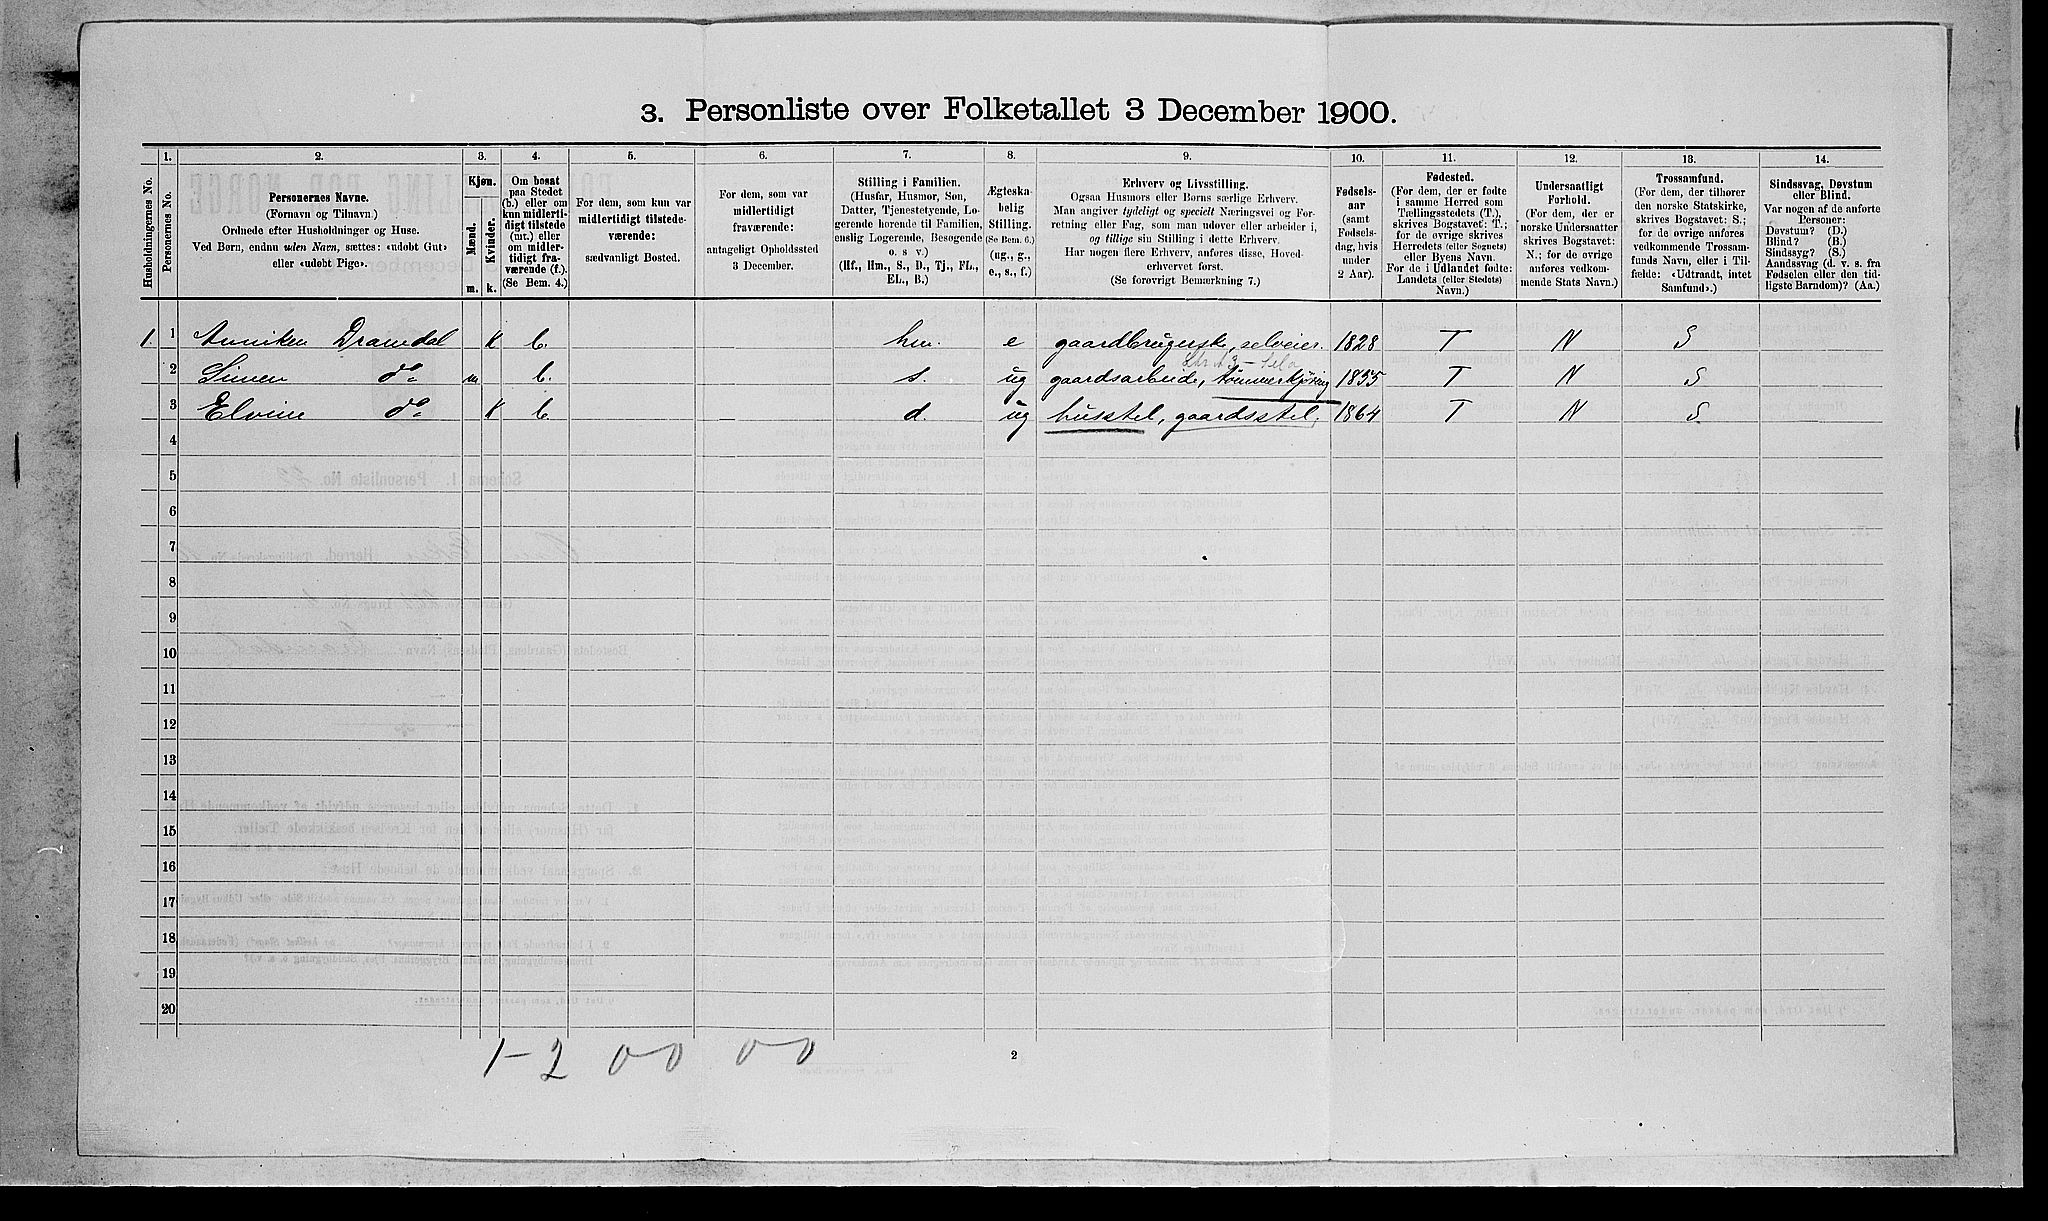 3. Personliste over Folketallet 3 December 1900.
1. 2. 3. 4. 5. 6. 7. 8. 9. 10. 11. 12. 13. 14.
Husholdningernes No.
Personernes No.
Personernes Navne.
(Fornavn og Tilnavn.)
Ordnede efter Husholdninger og Huse.
Ved Børn, endnu uden Navn, sættes: «udøbt Gut»
eller «udøbt Pige».
Kjøn.
Mænd.
Kvinder.
m. k.
Om bosat
paa Stedet
(b.) eller om
kun midlerti-
digt tilstede
(mt.) eller
om midler-
tidigt fra-
værende (f.).
(Se Bem. 4.)
For dem, som kun var
midlertidigt tilstede-
værende:
sædvanligt Bosted.
For dem, som var
midlertidigt
fraværende:
antageligt Opholdssted
3 December.
Stilling i Familien.
(Husfar, Husmor, Søn,
Datter, Tjenestetyende, Lo-
gerende hørende til Familien,
enslig Logerende, Besøgende
o. s. v.)
(Hf., Hm., S., D., Tj., FL.,
EL., B.)
Ægteska-
belig
Stilling.
(Se Bem. 6.)
(ug., g.,
e., s., f.)
Erhverv og Livsstilling.
Ogsaa Husmors eller Børns særlige Erhverv.
Man angiver tydeligt og specielt Næringsvei og For-
retning eller Fag, som man udøver eller arbeider i,
og tillige sin Stilling i dette Erhverv.
Har nogen flere Erhverv, anføres disse, Hoved-
erhvervet først.
(Se forøvrigt Bemærkning 7.)
Fødsels-
aar
(samt
Fødsels-
dag, hvis
under
2 Aar).
Fødested.
(For dem, der er fødte
i samme Herred som
Tællingsstedets (T.),
skrives Bogstavet: T.;
for de øvrige skrives
Herredets (eller Sognets)
eller Byens Navn.
For de i Udlandet fødte:
Landets (eller Stedets)
Navn.)
Undersaatligt
Forhold.
(For dem, der er
norske Undersaatter
skrives Bogstavet:
N.; for de øvrige
anføres vedkom-
mende Stats Navn.)
Trossamfund.
(For dem, der tilhører
den norske Statskirke,
skrives Bogstavet: S.;
for de øvrige anføres
vedkommende Trossam-
funds Navn, eller i Til-
fælde: «Udtraadt, intet
Samfund».)
Sindssvag, Døvstum
eller Blind.
Var nogen af de anførte
Personer:
Døvstum? (D.)
Blind? (B.)
Sindssyg? (S.)
Aandssvag (d. v. s. fra
Fødselen eller den tid-
ligste Barndom)? (Aa.)
1. 1 Anniken Dramdal k b. hm. e gaardbrugerske, selveier. 1828 T N S
2 Simen do m b. s. ug gaardsarbeide, tømmerkjøring 1855 T N S
3 Elvine do k b. d. ug husstel, gaardsstel. 1864 T N S.
4
5
6
7
8
9
10
11
12
13
14
15
16
17
18
19
20
1-2 0-0 0-0
2